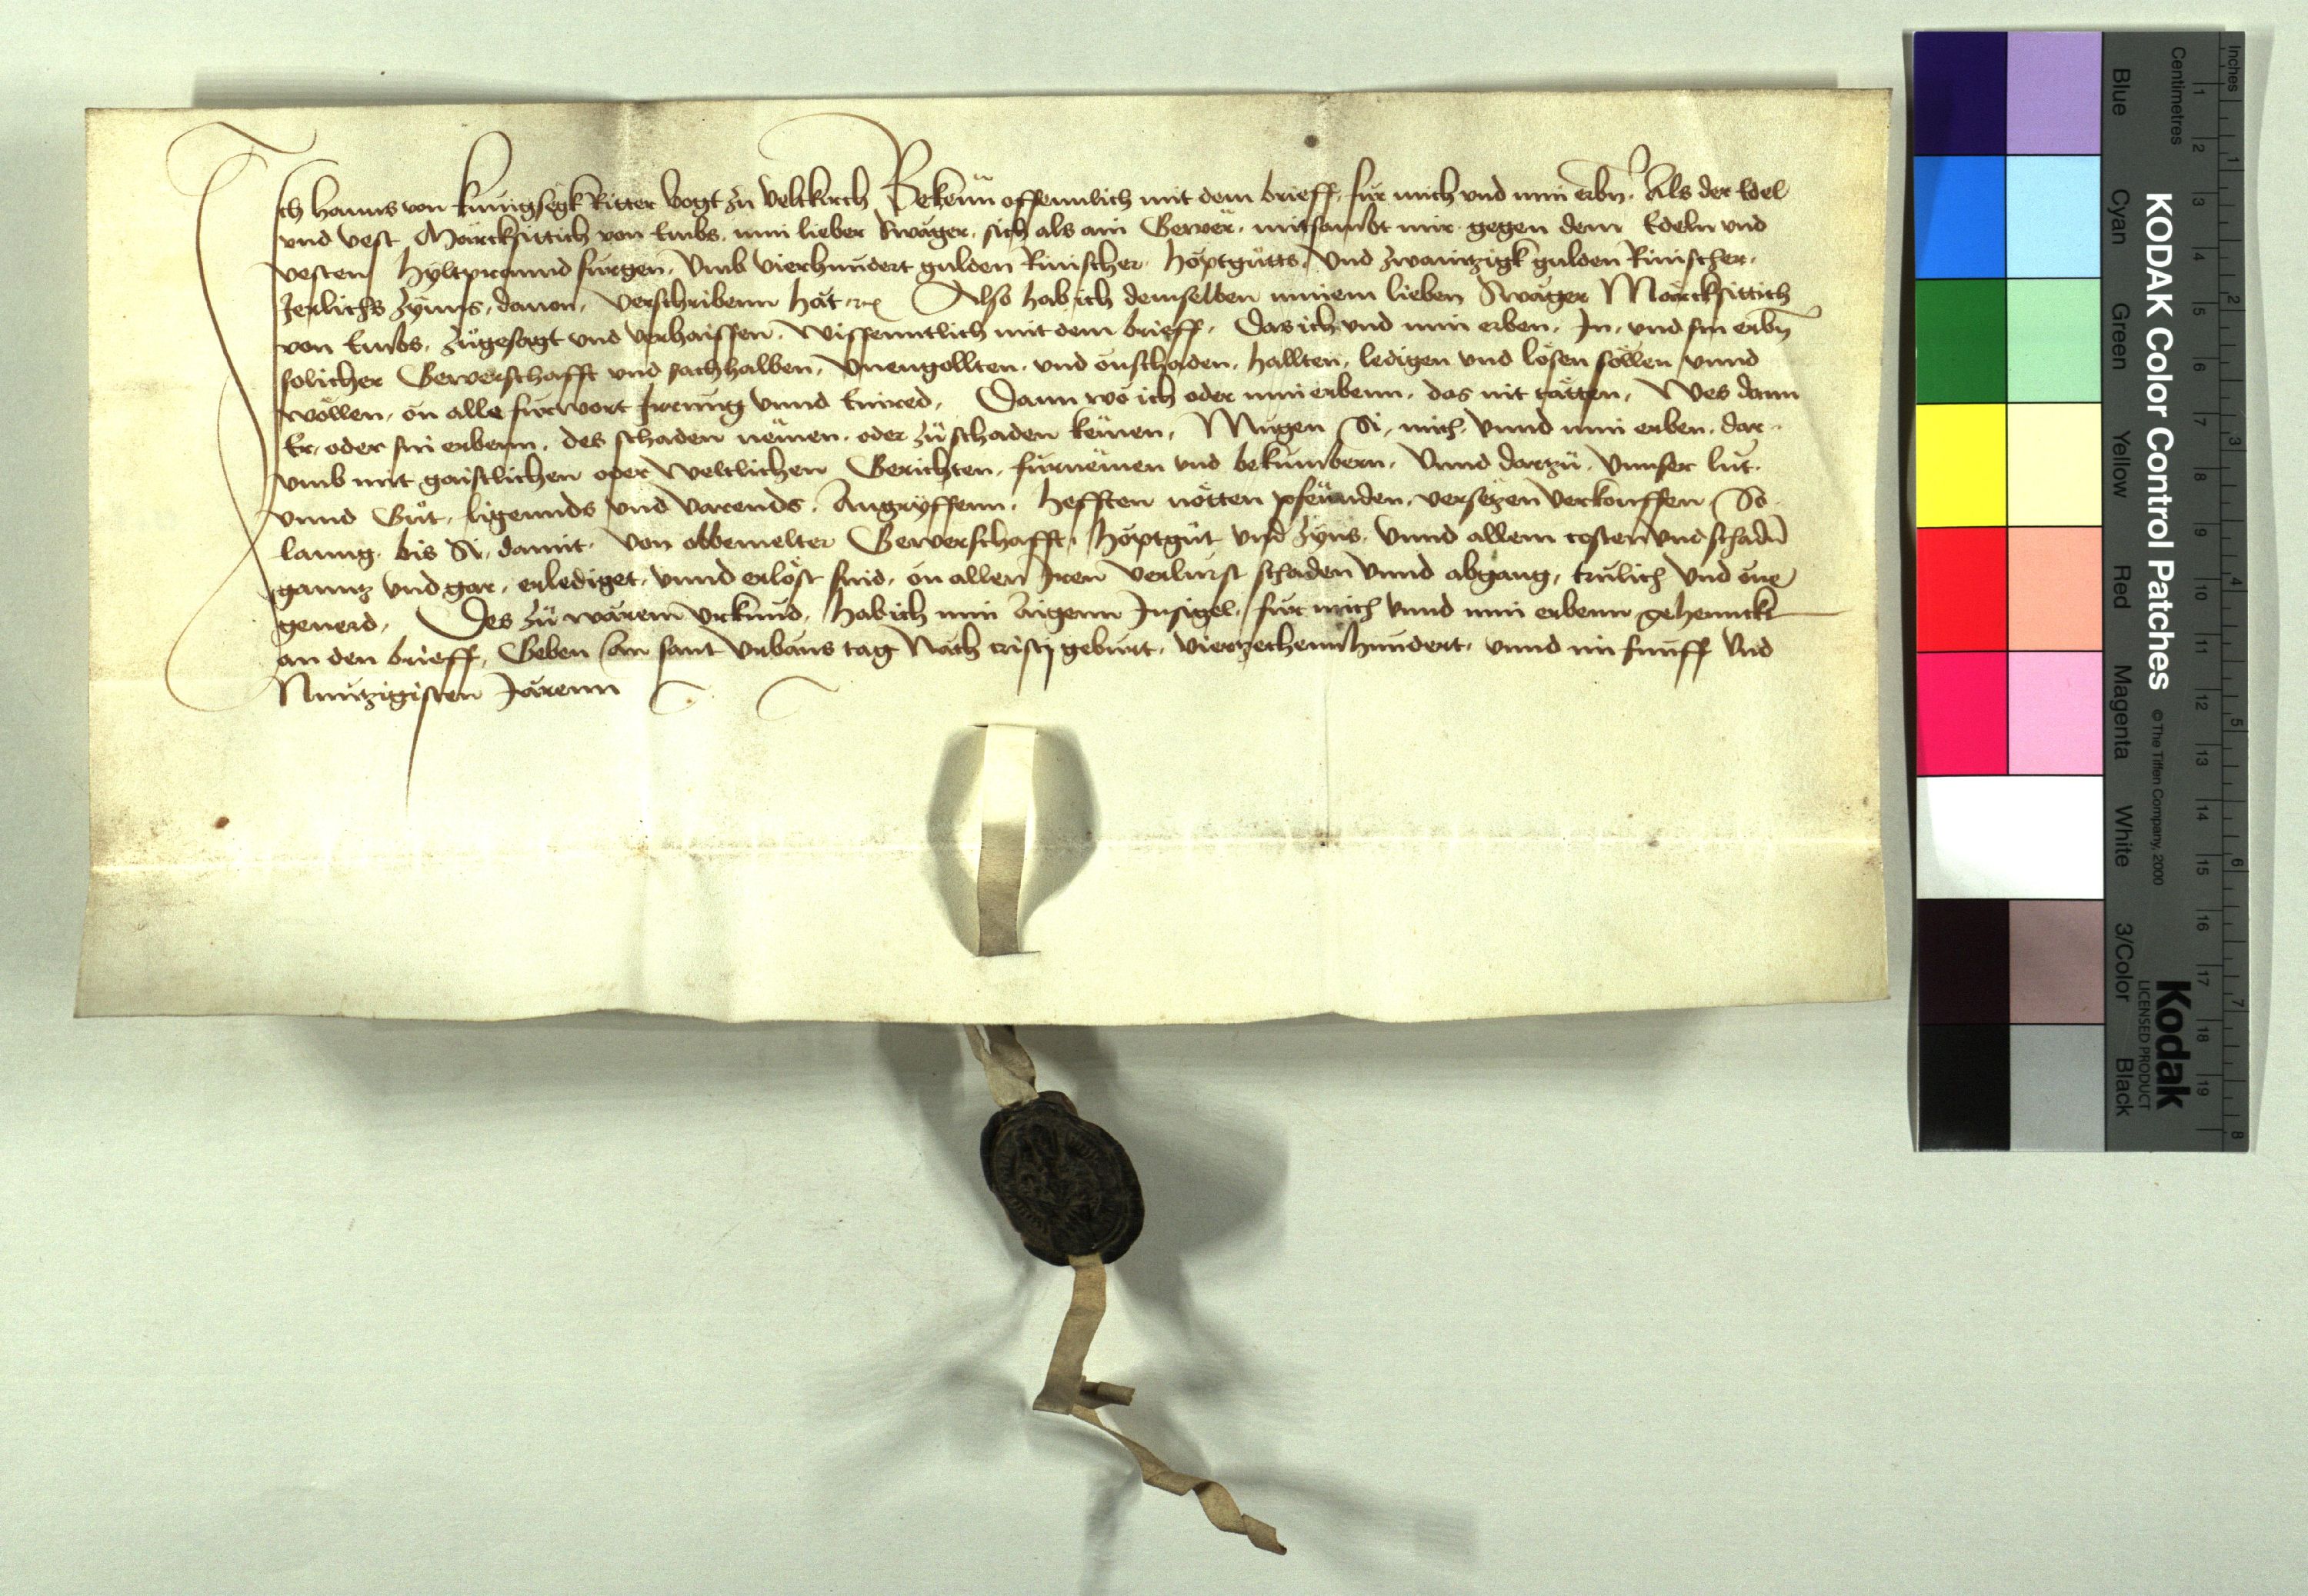 Ich Hanns von Küngsegk Ritter Vogt zu Veltkirch Bekenn offennlich mit dem brieff, für mich vnd min erbn. Als der Edel
vnd vest Märcksittich von Embs, min lieber Swäger, sich als ain Gewer, mitsambt mir gegen dem Edeln vnd
vesten Hyltprannd fürgen, Vmb vierhundert gulden Rinischer Höptgütts, Vnd Zwaintzigk gulden Rinischer,
Jerlichs Zynns, dauon, verschribenn hät etc Also hab ich demselben minem lieben Swäger Märcksittich
von Embs, Zügesagt vnd verhaissen, Wissenntlich mit dem brieff, Das ich vnd min erben, Jn, vnd sin erbn
solicher Gewerschafft vnd sachhalben, Vnengollten, vnd onschaden, hallten, ledigen vnd lösen söllen vnnd
wöllen, on alle fürwort Jrrung Vnnd Einred, Dann wö ich oder min erbenn, das nit tätten, Wes dann
Er, oder sin erbenn, des schaden nemen, oder zü schaden kemen, Mugen Si, mich, Vnnd min erben, dar-
vmb mit gaistlichen oder Weltlichen Gerichten, fürnemen vnd bekumbern, Vnnd dartzü, Vnnser lüt,
vnnd Güt, ligennds vnd Varends, Angryffenn, Hefften nötten pfennden, versetzen verkouffen So
lanng, bis Si, damit, von obbemelter Gewerschafft, Höptgüt vnd Zyns, Vnnd allem costen vnd schadn
ganntz vnd gar, erlediget, vnnd erlöst sind, on allen Jren verlurst schaden Vnnd abgang, trülich Vnd one
geuerd, Des zü wärem Vrkund, Hab ich min Aigenn Jnsigel, für mich Vnnd min erbenn gehennckt
an den brieff, Geben an sant Vrbans tag Nach cristj geburt, Vierzechennhundert, vnnd im fünff Vnd
Nüntzigisten Järenn
KODAK Color Control Patches
© The Tiffen Company, 2000
Kodak
LICENSED PRODUCT
Inches
Centimetres
1 2 3 4 5 6 7 8
1 2 3 4 5 6 7 8 9 10 11 12 13 14 15 16 17 18 19
Blue
Cyan
Green
Yellow
Red
Magenta
White
3/Color
Black